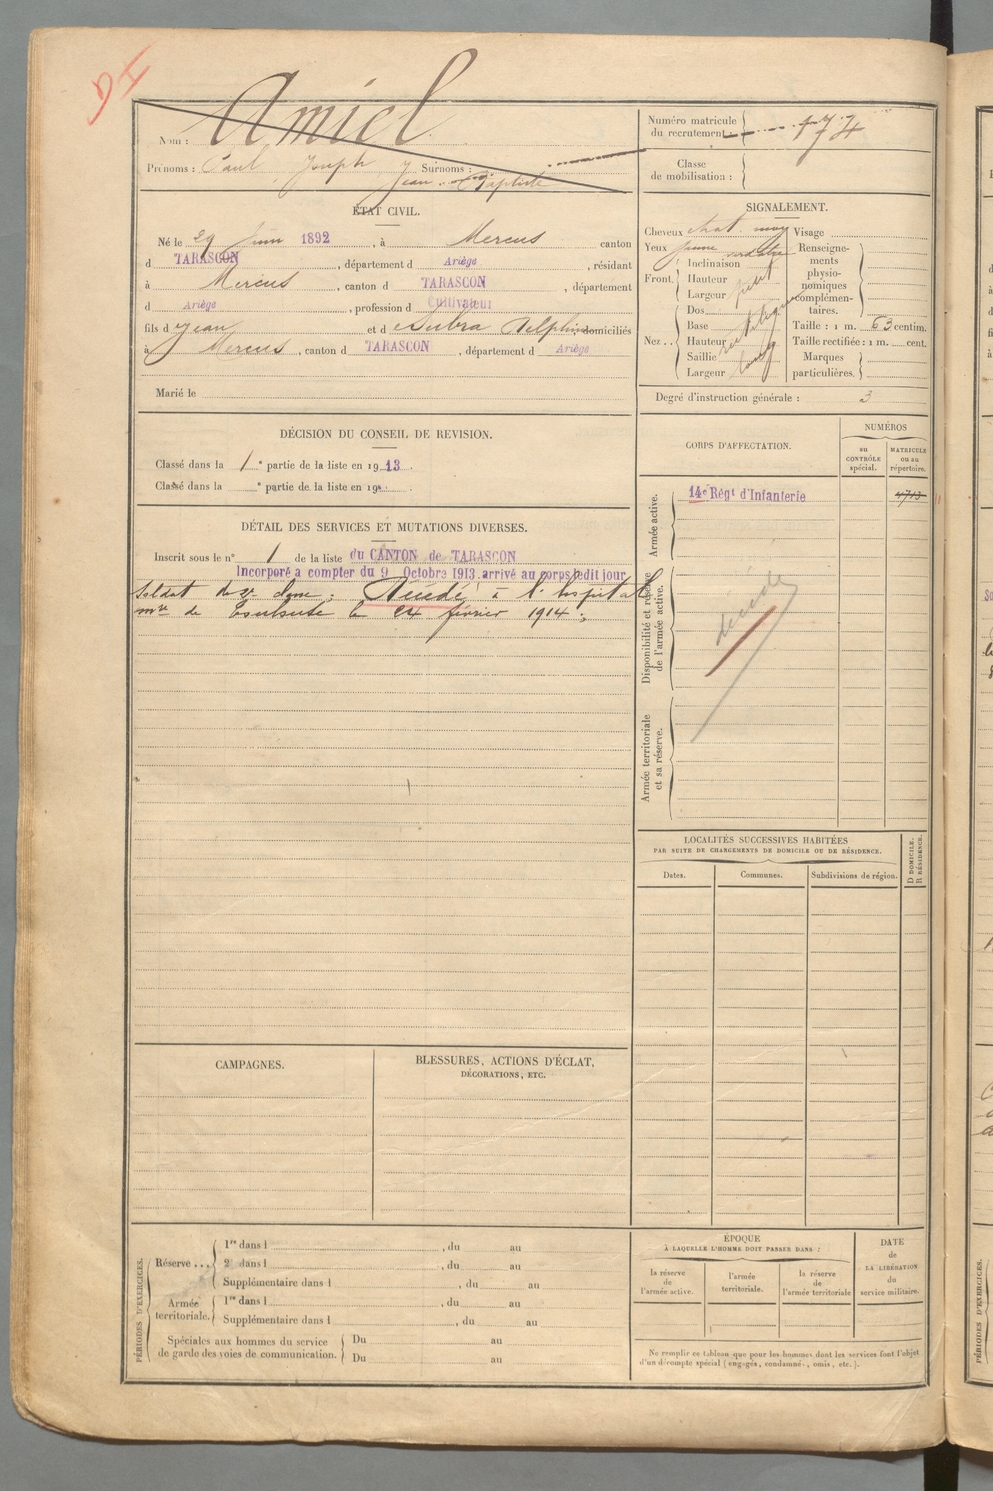 94
Nom : Amiel
Prénoms : Paul Joseph Surnoms :
Jean-Baptiste
Numéro matricule
du recrutement : 174
Classe
de mobilisation :
ÉTAT CIVIL.
Né le 29 Juin 1892, à Mercus canton
d TARASCON, département d Ariège, résidant
à Mercus, canton d TARASCON, département
d Ariège, profession d Cultivateur
fils d Jean et d Subra Delphine domiciliés
à Mercus, canton d TARASCON, département d Ariège
Marié le
SIGNALEMENT.
Cheveux chat moy Visage
Yeux jaune verdatre
Front. Inclinaison
Hauteur
Largeur
Nez .. Dos
Base
Hauteur
Saillie
Largeur long
Renseigne-
ments
physio-
nomiques
complémen-
taires.
Taille : 1 m. 63 centim.
Taille rectifiée : 1 m. cent.
Marques
particulières.
Degré d'instruction générale : 3
DÉCISION DU CONSEIL DE REVISION.
Classé dans la 1e partie de la liste en 1913.
Classé dans la e partie de la liste en 19
DÉTAIL DES SERVICES ET MUTATIONS DIVERSES.
Inscrit sous le n° 1 de la liste du CANTON de TARASCON
Incorporé a compter du 9 Octobre 1913, arrivé au corps ledit jour
Soldat de 2e classe. Décédé à l'hospital
mre de Toulouse le 24 février 1914.
CORPS D'AFFECTATION.
NUMÉROS
au
CONTRÔLE
spécial.
MATRICULE
ou au
répertoire.
Armée active.
14e Régt d'Infanterie 4713
Disponibilité et réserve
de l'armée active.
décédé
Armée territoriale
et sa réserve.
LOCALITÉS SUCCESSIVES HABITÉES
PAR SUITE DE CHANGEMENTS DE DOMICILE OU DE RÉSIDENCE.
Dates.
Communes.
Subdivisions de région.
D DOMICILE.
R RÉSIDENCE.
CAMPAGNES.
BLESSURES, ACTIONS D'ÉCLAT,
DÉCORATIONS, ETC.
PÉRIODES D'EXERCICES.
Réserve ... 1re dans l , du au
2e dans l , du au
Supplémentaire dans l , du au
Armée
territoriale. 1re dans l , du au
Supplémentaire dans l , du au
Spéciales aux hommes du service
de garde des voies de communication. Du au
Du au
ÉPOQUE
À LAQUELLE L'HOMME DOIT PASSER DANS :
la réserve
de
l'armée active.
l'armée
territoriale.
la réserve
de
l'armée territoriale
DATE
de
LA LIBÉRATION
du
service militaire.
Ne remplir ce tableau que pour les hommes dont les services font l'objet
d'un décompte spécial (engagés, condamné, omis, etc.).
PÉRIODES D'EXERCICES.